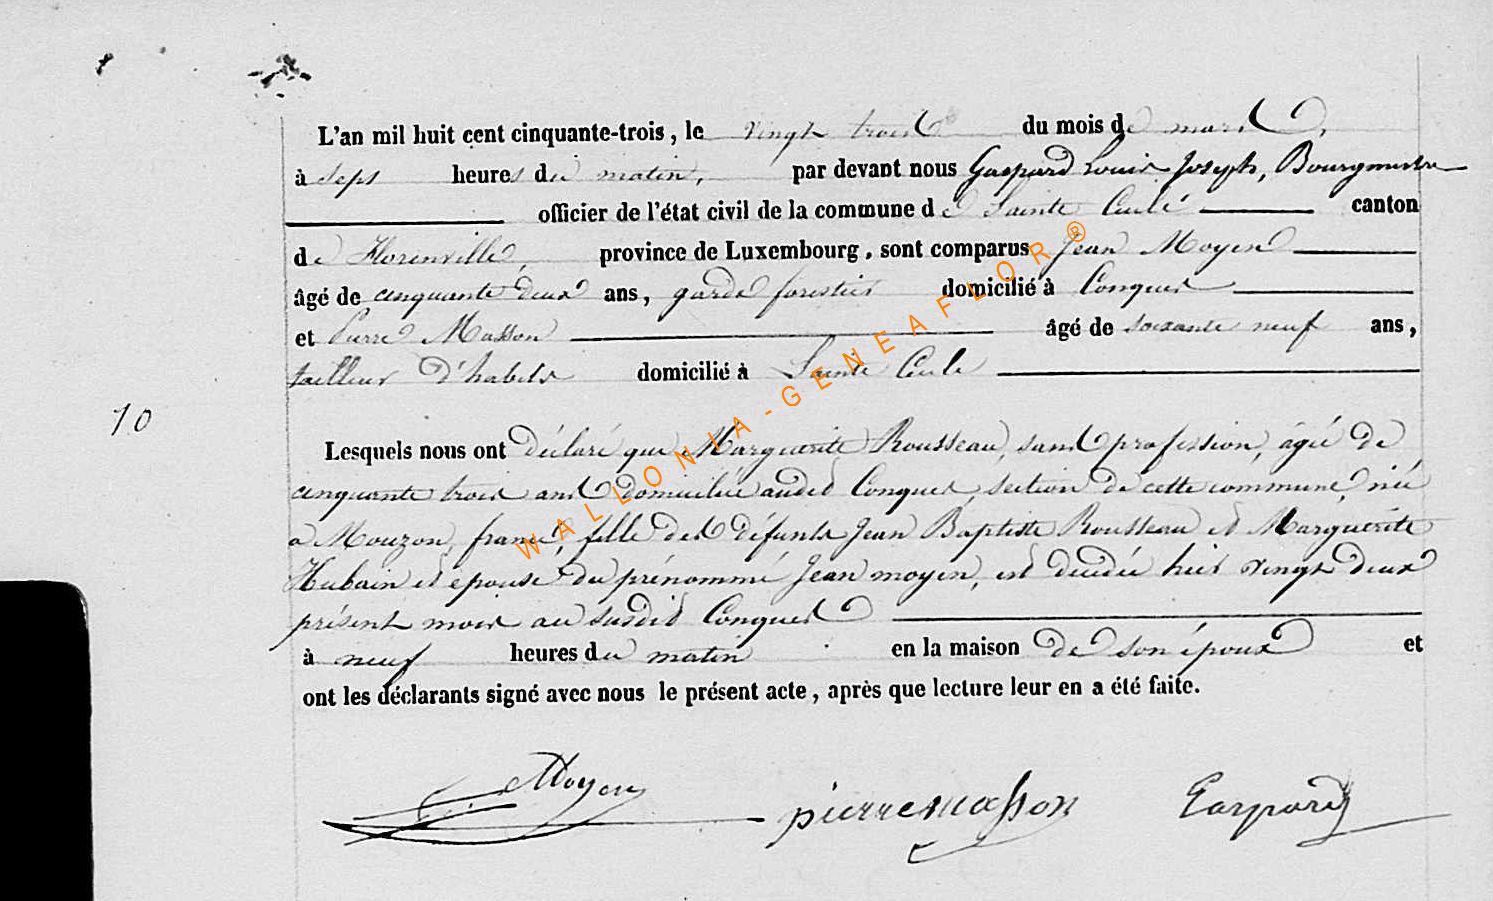 L'an mil huit cent cinquante-trois, le vingt trois du mois de mars,
à sept heures du matin, par devant nous Gaspard Louis Joseph, Bourgmestre
officier de l'état civil de la commune de Sainte Cecile canton
de Florenville, province de Luxembourg, sont comparus Jean Moyen
âgé de cinquante deux ans, garde forestier domicilié à Conques
et Pierre Masson âgé de soixante neuf ans,
tailleur d'habits domicilié à Sainte Cecile
10
Lesquels nous ont déclaré que Marguerite Rousseau, sans profession, âgée de
cinquante trois ans domiciliée audit Conques, section de cette commune, née
a Mouzon, france, fille des défunts Jean Baptiste Rousseau et Marguerite
Hubain et epouse du prénommé Jean moyen, est decédée hier vingt deux
présent mois au susdit Conques
à neuf heures du matin en la maison de son époux et
ont les déclarants signé avec nous le présent acte, après que lecture leur en a été faite.
Moyen pierre masson Gaspard
WALLONIA-GENEAFLOR®